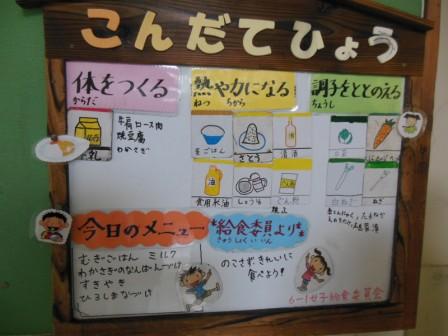 こんだてひょう
体をつくる
からだ
熱や力になる
ねつ ちから
調子をととのえる
ちょうし
牛肩ロース肉
焼豆腐
わかさぎ
麦ごはん
さとう
清酒
食用米油
しょうゆ
でん粉
白菜
ねぎ
今日のメニュー
むぎごはん ミルク
わかさぎのなんばんづけ
すきやき
ひろしまなづけ
給食委員より
きゅうしょくいいん
のこさずきれいに
食べよう!
6-1女子給食委員会